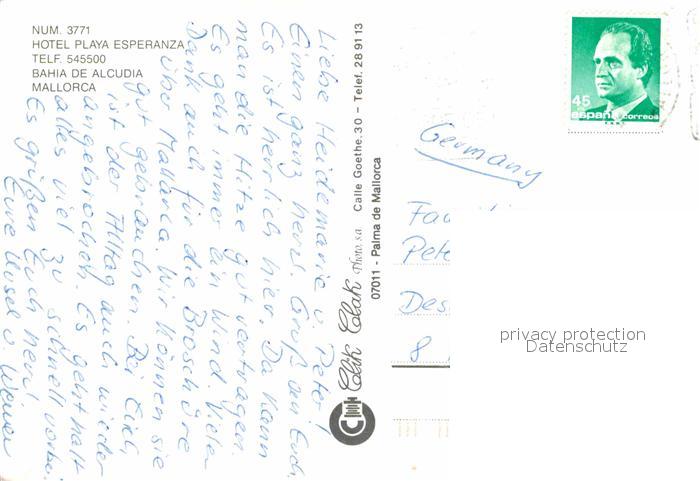 NUM. 3771
HOTEL PLAYA ESPERANZA
TELF. 545500
BAHIA DE ALCUDIA
MALLORCA
Liebe Heidemarie u. Peter!
Einen ganz herzl. Gruß an Euch.
Es ist herrlich hier. Da kann
man die Hitze gut vertragen.
Es geht immer ein Wind. Vielen
Dank auch für die Broschüre
über Mallorca. Wir können sie
gut gebrauchen. Bei Euch
ist der Alltag auch wieder
angebrochen. Es geht halt
alles viel zu schnell vorbei.
Es grüßen Euch herzl
Eure Ursel u Werner
Clik Clak Photo, s.a. Calle Goethe, 30 - Telef. 28 91 13
07011 - Palma de Mallorca
45
españa correos
Germany
Fa
Pete
Des
8
privacy protection
Datenschutz